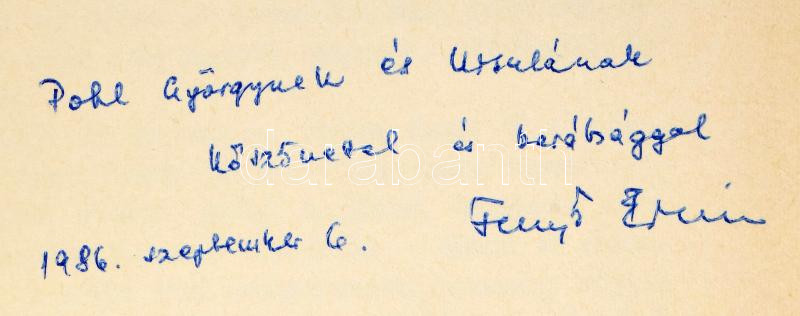 Pohl Györgynek és Ursulának
köszönettel és barátsággal
1986. szeptember 6. Fenyő Ervin
darabanth